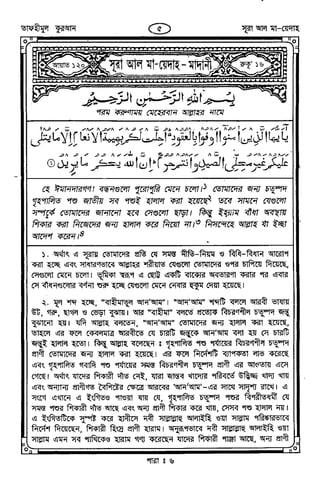 তাফহীমুল কুরআন ৫ সূরা আল মা-য়েদাহ
আয়াত ১২০ সূরা আল মা-য়েদাহ - মাদানী রুকূ' ১৬
بِسْمِ اللهِ الرَّحْمٰنِ الرَّحِيْمِ
পরম করুণাময় মেহেরবান আল্লাহর নামে
يٰٓاَيُّهَا الَّذِيْنَ اٰمَنُوْٓا اَوْفُوْا بِالْعُقُوْدِ اُحِلَّتْ لَكُمْ بَهِيْمَةُ الْاَنْعَامِ اِلَّا مَا يُتْلٰى
عَلَيْكُمْ غَيْرَ مُحِلِّى الصَّيْدِ وَاَنْتُمْ حُرُمٌ اِنَّ اللهَ يَحْكُمُ مَا يُرِيْدُ ①
হে ঈমানদারগণ! বন্ধনগুলো পুরোপুরি মেনে চলো।১ তোমাদের জন্য চতুষ্পদ
গৃহপালিত পশু জাতীয় সব পশুই হালাল করা হয়েছে২ তবে সামনে যেগুলো
সম্পর্কে তোমাদের জানানো হবে সেগুলো ছাড়া। কিন্তু ইহ্‌রাম বাঁধা অবস্থায়
শিকার করা নিজেদের জন্য হালাল করে নিয়ো না।৩ নিসন্দেহে আল্লাহ যা ইচ্ছা
আদেশ করেন।৪
১. অর্থাৎ এ সূরায় তোমাদের প্রতি যে সমস্ত নীতি-নিয়ম ও বিধি-বিধান আরোপ
করা হচ্ছে এবং সাধারণভাবে আল্লাহর শরীয়াত যেগুলো তোমাদের ওপর চাপিয়ে দিয়েছে,
সেগুলো মেনে চলো। ভূমিকা স্বরূপ এ ছোট্ট একটি বাক্যের অবতারণা করার পর এবার
সে বাঁধনগুলোর বর্ণনা শুরু হচ্ছে যেগুলো মেনে নেবার হুকুম দেয়া হয়েছে।
২. মূল শব্দ হচ্ছে, "বাহীমাতুল আন'আম"। "আন'আম" শব্দটি বললে আরবী ভাষায়
উট, গরু, ছাগল ও ভেড়া বুঝায়। আর "বাহীমা" বলতে প্রত্যেক বিচরণশীল চতুষ্পদ জন্তু
বুঝানো হয়। যদি আল্লাহ বলতেন, "আন'আম" তোমাদের জন্য হালাল করা হয়েছে,
তাহলে এর ফলে কেবলমাত্র আরবীতে যে চারটি জন্তুকে আন'আম বলা হয় সে চারটি
জন্তুই হালাল হতো। কিন্তু আল্লাহ বলেছেন : গৃহপালিত পশু পর্যায়ের বিচরণশীল চতুষ্পদ
প্রাণী তোমাদের জন্য হালাল করা হয়েছে। এর ফলে নির্দেশটি ব্যাপকতা লাভ করেছে
এবং গৃহপালিত গবাদি পশু পর্যায়ের সমস্ত বিচরণশীল চতুষ্পদ প্রাণী এর আওতায় এসে
গেছে। অর্থাৎ যাদের শিকারী দাঁত নেই, যারা জান্তব খাদ্যের পরিবর্তে উদ্ভিজ্জ খাদ্য খায়
এবং অন্যান্য প্রাণীগত বৈশিষ্টের ক্ষেত্রে আরবের 'আন'আম'-এর সাথে সাদৃশ্য রাখে। এ
সংগে এখানে এ ইংগিতও পাওয়া যায় যে, গৃহপালিত চতুষ্পদ পশুর বিপরীতধর্মী যে
সমস্ত পশুর শিকারী দাঁত আছে এবং অন্য প্রাণী শিকার করে খায়, সেসব পশু হালাল নয়।
এ ইংগিতটিকে সুস্পষ্ট করে হাদীসে নবী সাল্লাল্লাহু আলাইহি ওয়া সাল্লাম পরিষ্কারভাবে
নির্দেশ দিয়েছেন, শিকারী হিংস্র প্রাণী হারাম। অনুরূপভাবে নবী সাল্লাল্লাহু আলাইহি ওয়া
সাল্লাম এমন সব পাখিকেও হারাম গণ্য করেছেন যাদের শিকারী পাঞ্জা আছে, অন্য প্রাণী
পারা : ৬